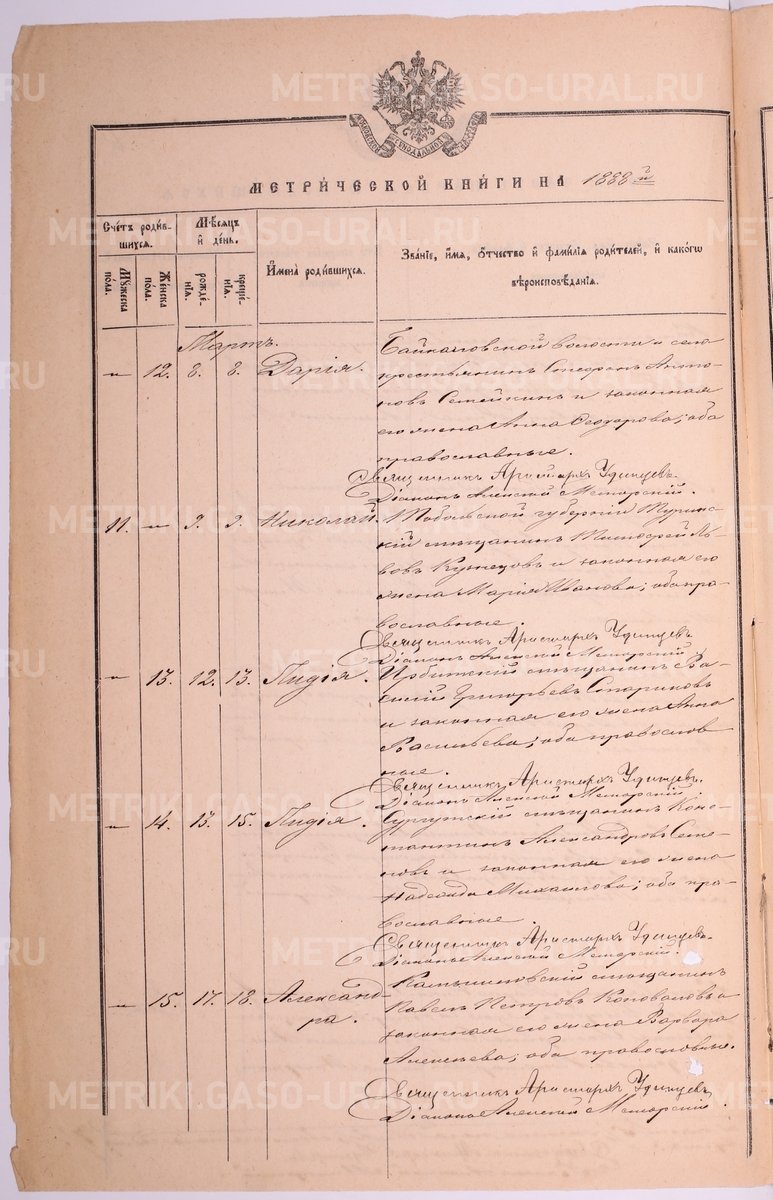 МЕТРИ́ЧЕСКОЙ КНИ́ГИ НА 1888 й
Сче́тъ роди́в-
шихся.
Мѣ́сяцъ
и́ де́нь.
И҆мена̀ роди́вшихся.
Зва́ніе, и҆́мя, о҆́тчество и҆ фами́лія роди́телей, и҆ како́гѡ
вѣроисповѣ́данія.
Му́жеска
по́ла.
Же́нска
по́ла.
рожде́-
нія.
креще́-
нія.
Мартъ.
" 12. 8. 8. Дарія.
Байкаловской волости и села
крестьянинъ Стефанъ Анто-
новъ Семейкинъ и законная
его жена Анна Ѳеодорова; оба
православные.
Священникъ Аристархъ Удинцевъ.
Діаконъ Алексѣй Меморскій.
11. " 9. 9. Николай.
Тобольской губерніи Турин-
скій мѣщанинъ Тимоѳей Ль-
вовъ Кузнецовъ и законная его
жена Марія Иванова; оба пра-
вославные.
Священникъ Аристархъ Удинцевъ.
Діаконъ Алексѣй Меморскій
" 13. 12. 13. Лидія.
Ирбитскій мѣщанинъ Ва-
силій Григорьевъ Стариковъ
и законная его жена Анна
Васильева; оба православ-
ные.
Священникъ Аристархъ Удинцевъ.
Діаконъ Алексѣй Меморскій
" 14. 13. 15. Лидія.
Сургутскій мѣщанинъ Конс-
тантинъ Александровъ Семе-
новъ и законная его жена
Надежда Михаилова; оба пра-
вославные.
Священникъ Аристархъ Удинцевъ.
Діаконъ Алексѣй Меморскій.
" 15. 17. 18. Александ-
ра.
Камышловскій мѣщанинъ
Павелъ Петровъ Коноваловъ и
законная его жена Варвара
Алексѣева; оба православные.
Священникъ Аристархъ Удинцевъ
Діаконъ Алексѣй Меморскій.
METRIKI.GASO-URAL.RU